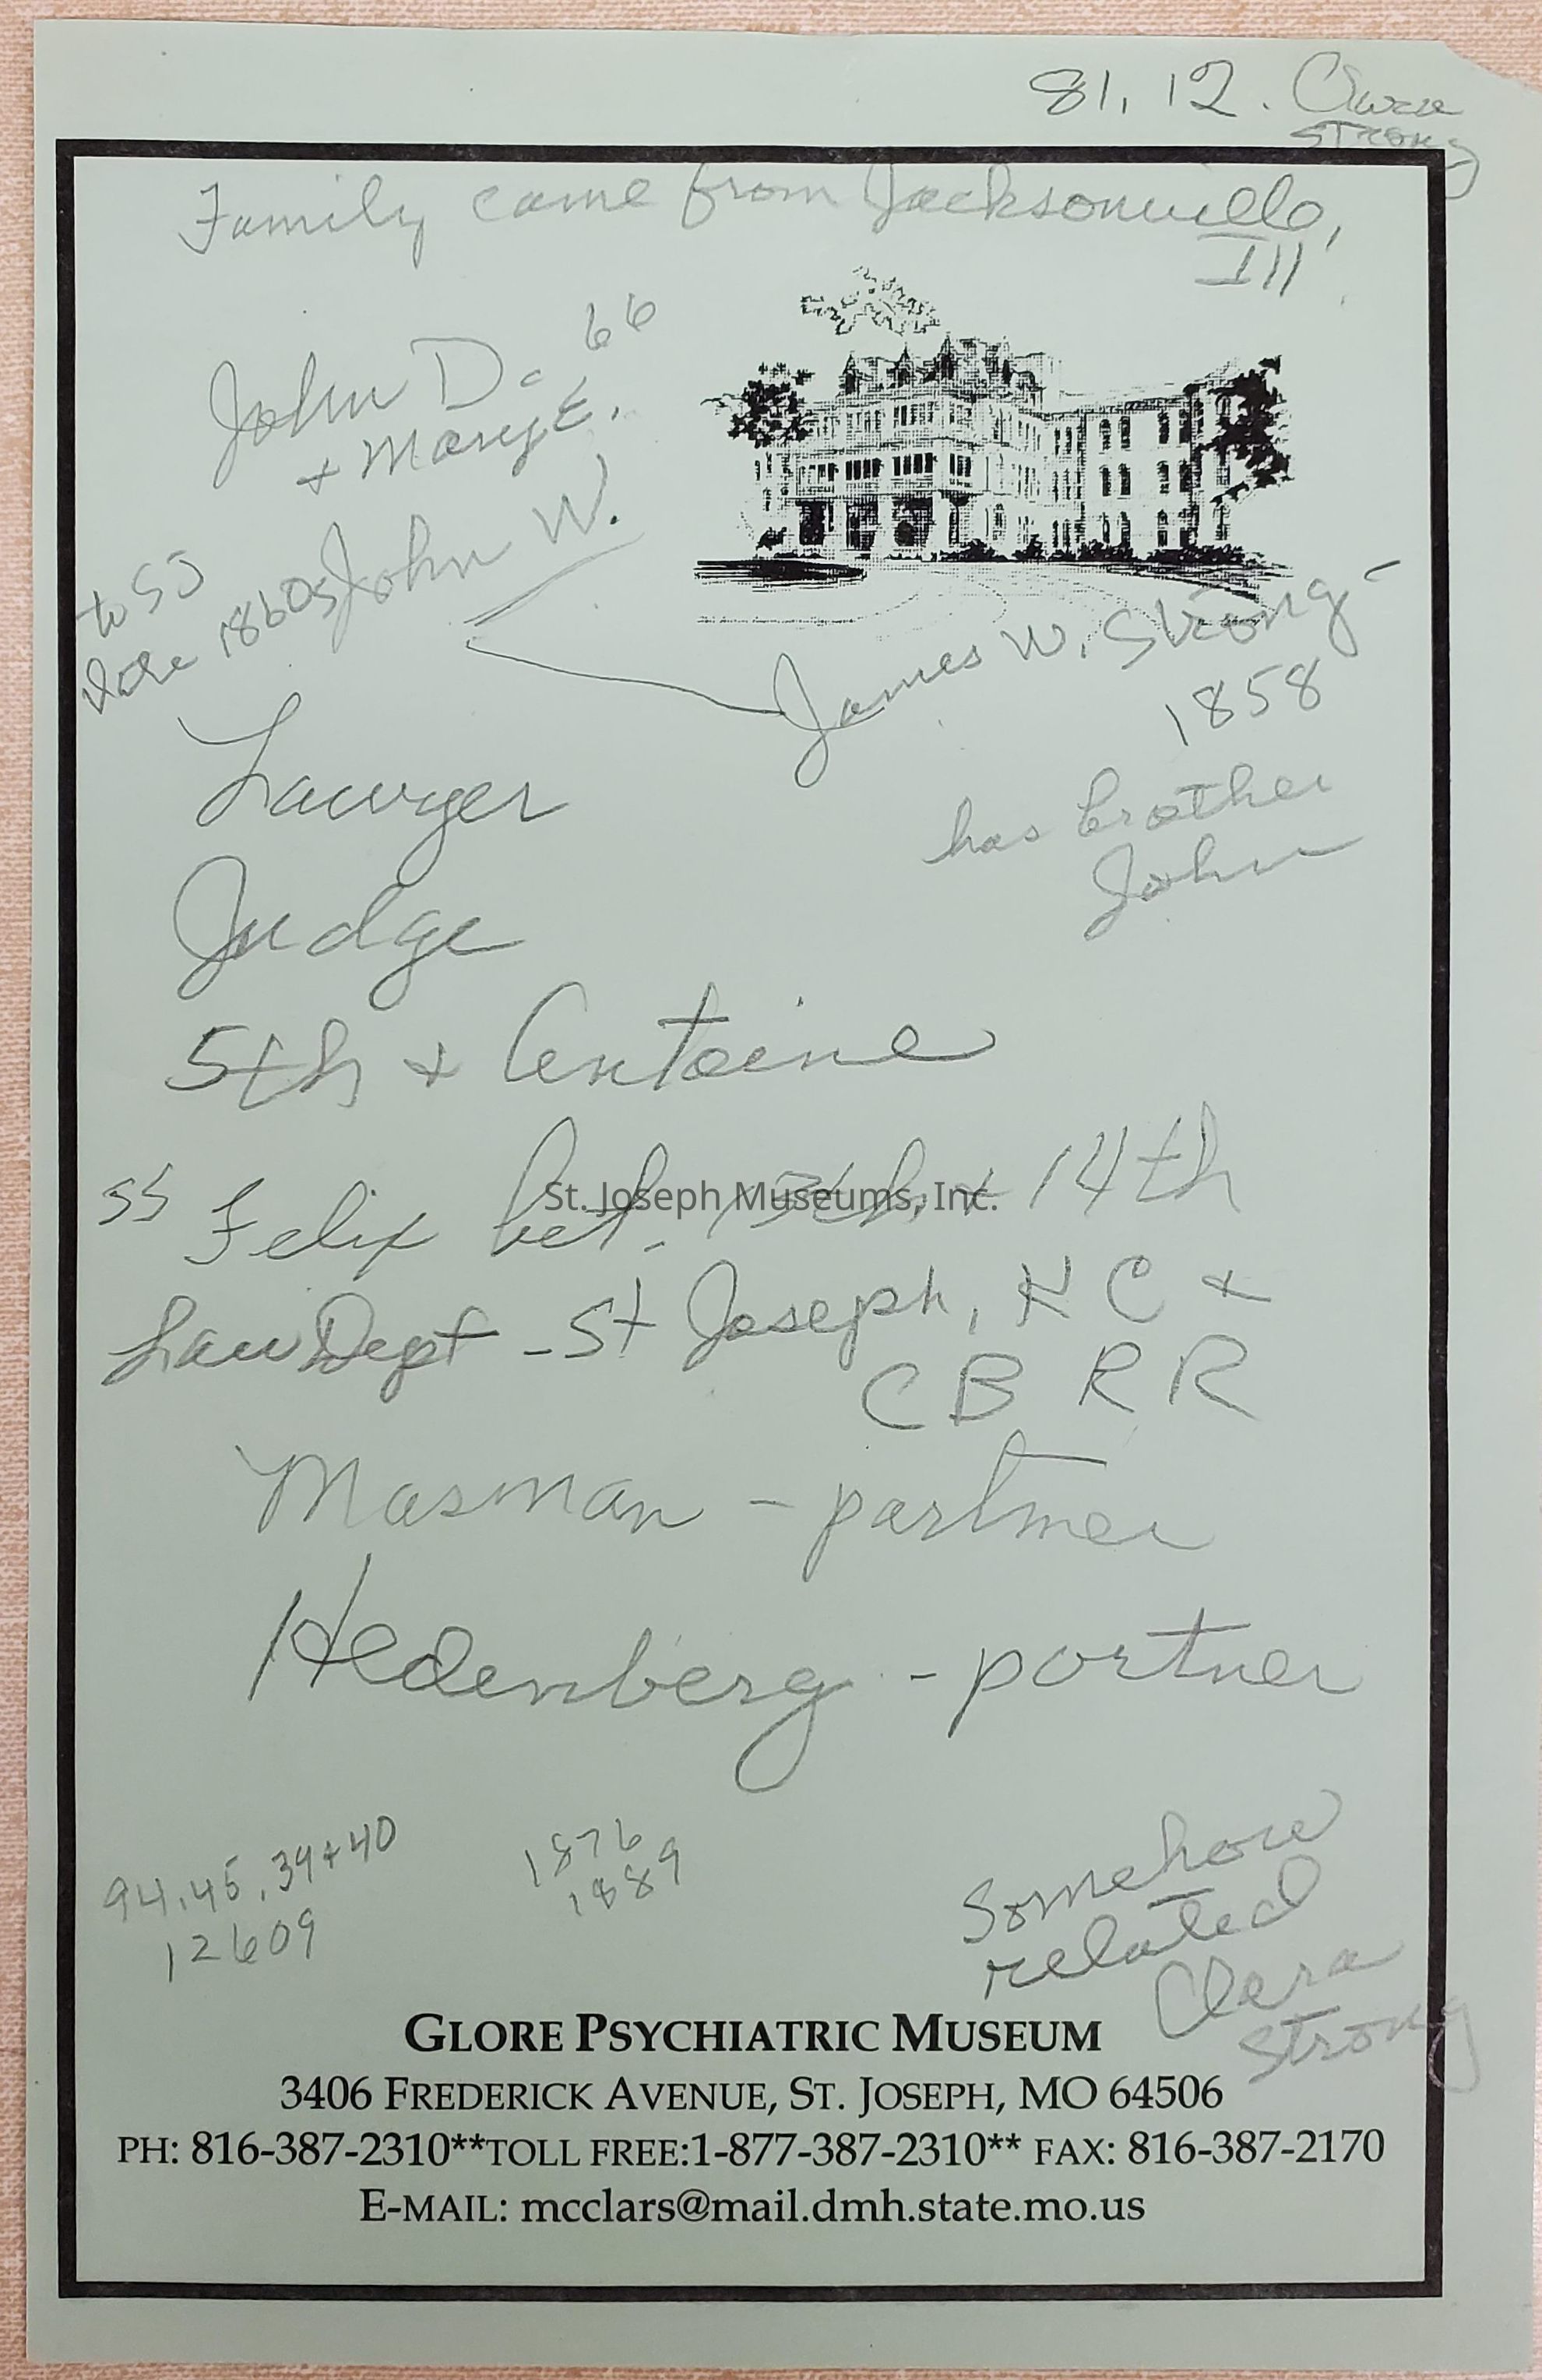 81.12. Clara
Strong
Family came from Jacksonville,
Ill.
John D. 66
+ Mary E.
John W.
to SJ
late 1860s
James W. Strong -
1858
has brother
John
Lawyer
Judge
5th + Antoine
SS Felix bet. 13th + 14th
Law Dept - St Joseph, KC +
CB RR
Mosman - partner
Hedenberg - partner
94.45.39+40
12609
1876
1889
Somehow
related
Clara
Strong
St. Joseph Museums, Inc.
GLORE PSYCHIATRIC MUSEUM
3406 FREDERICK AVENUE, ST. JOSEPH, MO 64506
PH: 816-387-2310**TOLL FREE:1-877-387-2310** FAX: 816-387-2170
E-MAIL: mcclars@mail.dmh.state.mo.us